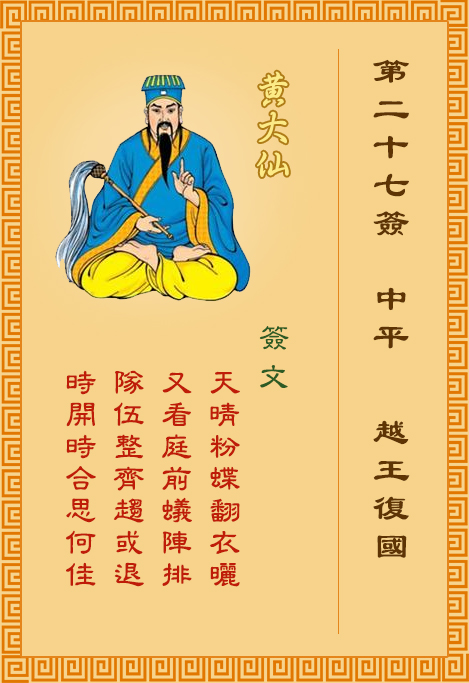 第二十七簽 中平 越王復國
黃大仙
簽文
天晴粉蝶翻衣曬
又看庭前蟻陣排
隊伍整齊趨或退
時開時合思何佳